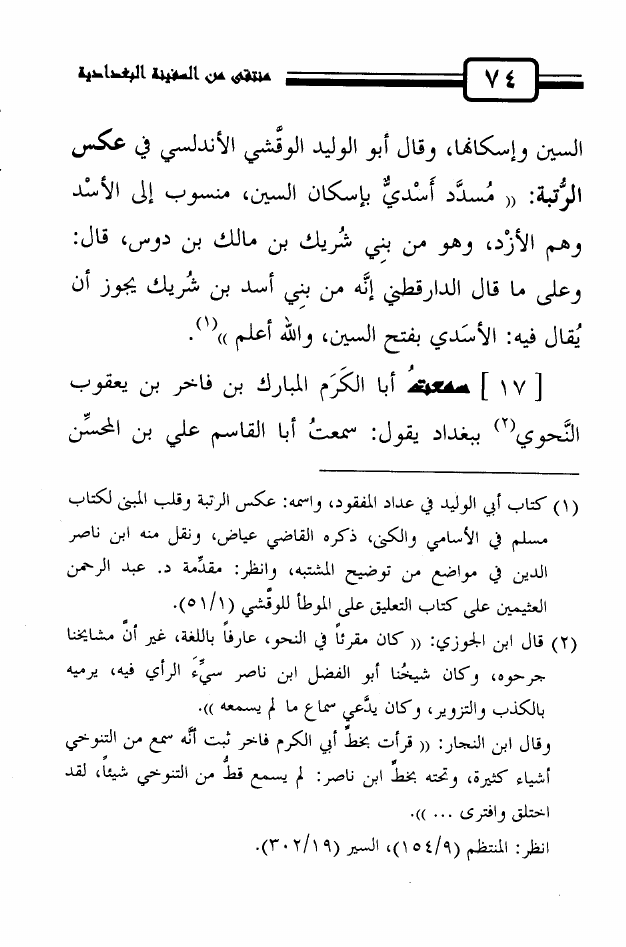 ٧٤
منتقى من السفينة البغدادية
السين وإسكانها، وقال أبو الوليد الوقَّشي الأندلسي في عكس
الرُّتبة: (( مُسدَّد أَسْديٌّ بإسكان السين، منسوب إلى الأسْد
وهم الأزْد، وهو من بنِي شُريك بن مالك بن دوس، قال:
وعلى ما قال الدارقطني إنَّه من بنِي أسد بن شُريك يجوز أن
يُقال فيه: الأسَدي بفتح السين، والله أعلم ))(١).
[ ١٧ ] سمعتُ أبا الكَرَم المبارك بن فاخر بن يعقوب
النَّحوي(٢) ببغداد يقول: سمعتُ أبا القاسم علي بن المحسِّن
(١) كتاب أبي الوليد في عداد المفقود، واسمه: عكس الرتبة وقلب المبنى لكتاب
مسلم في الأسامي والكنى، ذكره القاضي عياض، ونقل منه ابن ناصر
الدين في مواضع من توضيح المشتبه، وانظر: مقدِّمة د. عبد الرحمن
العثيمين على كتاب التعليق على الموطأ للوقَّشي (٥١/١).
(٢) قال ابن الجوزي: (( كان مقرئاً في النحو، عارفاً باللغة، غير أنَّ مشايخنا
جرحوه، وكان شيخُنا أبو الفضل ابن ناصر سيِّءَ الرأي فيه، يرميه
بالكذب والتزوير، وكان يدَّعي سماع ما لم يسمعه )).
وقال ابن النجار: (( قرأت بخطِّ أبي الكرم فاخر ثبت أنَّه سمع من التنوخي
أشياء كثيرة، وتحته بخطِّ ابن ناصر: لم يسمع قطُّ من التنوخي شيئاً، لقد
اختلق وافترى ... )).
انظر: المنتظم (١٥٤/٩)، السير (٣٠٢/١٩).